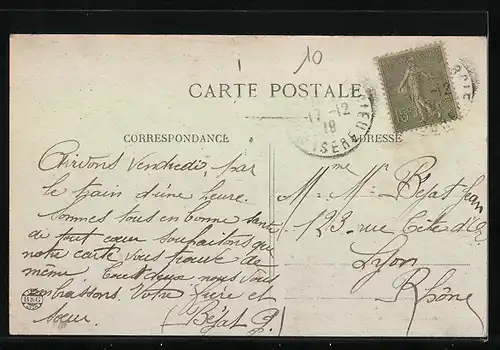 10
CARTE POSTALE
15c
17-12
18
ISERE
CORRESPONDANCE
ADRESSE
Arrivons Vendredi par
le train d'une heure.
Sommes tous en bonne santé
de tout cœur souhaitons que
notre carte vous trouve de
même. Tous deux nous vous
embrassons. Votre frère et
sœur. (Béjat J.)
Mme Mr Béjat Jean
123 rue Tête d'Or
Lyon
Rhône
B&G